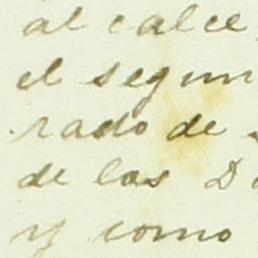 al calce
el segun
rado de
de los D
y como